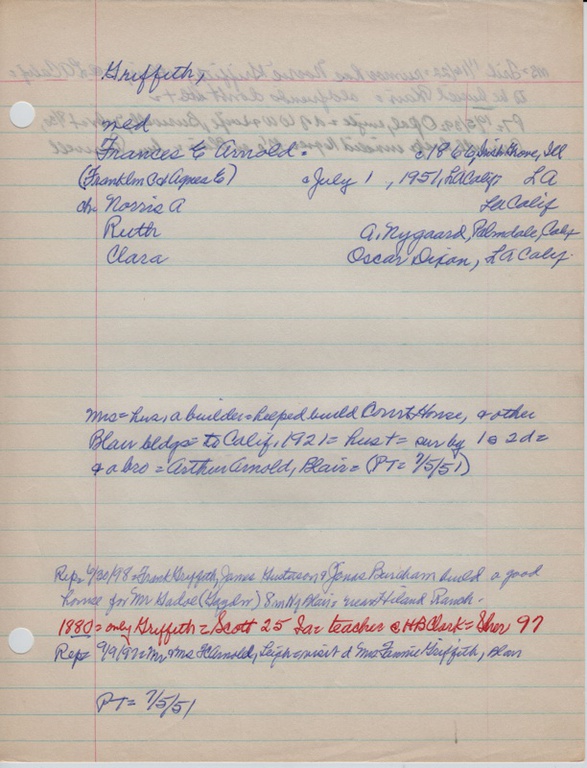 Griffith,
med
Frances E Arnold. c1866, Irish Grove, Ill
(Franklin C & Agnes E) July 1, 1951, LA Calif LA
ch Norris A La Calif
Ruth A. Nygaard, Palmdale, Calif
Clara Oscar Dixon, LA Calif.
Mrs = hus, a builder = helped build Court House, & other
Blair bldgs = to Calif, 1921 = hus + = sur by 1s 2d =
& a bro = Arthur Arnold, Blair = (PT = 7/5/51)
Rep = 6/30/98 = Frank Griffith, James Gusterson & Jonas Burcham build a good
house for Mr Gadoe (Gaydou) 8 m N of Blair near Hiland Ranch.
1880 = only Griffith = Scott 25 Ia = teacher c HB Clark = Sher 97
Rep = 9/9/97 = Mr & Mrs F Arnold, Leigh = visit d Mrs Fannie Griffith, Blair
PT = 7/5/51